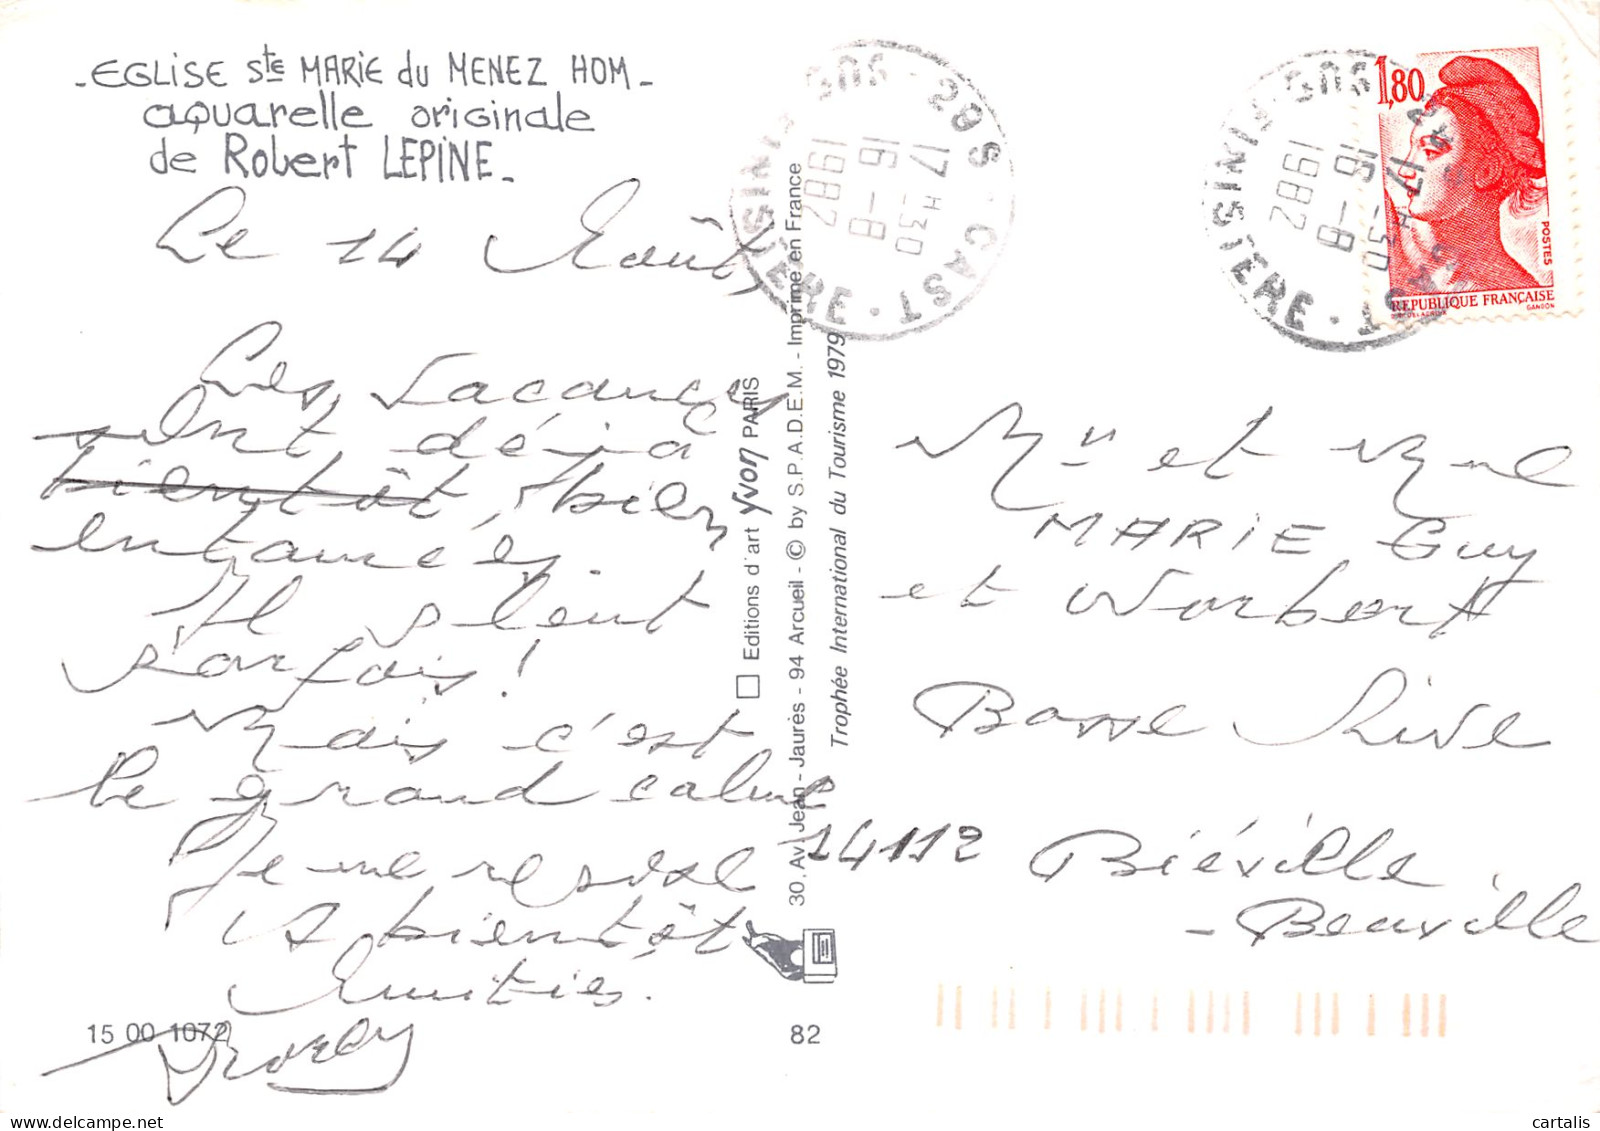 - EGLISE Ste MARIE du MENEZ HOM -
aquarelle originale
de Robert LEPINE -
Le 14 Août,
Les vacances
sont déjà
bientôt, bien
entamées
Il pleut
parfois !
Mais c'est
le grand calme
Je me repose
A bientôt
Amitiés.
15 00 1072
82
Editions d'art Yvon PARIS
30, Av. Jean-Jaurès - 94 Arcueil - © by S.P.A.D.E.M. - Imprimé en France
Trophée International du Tourisme 1979
29S · CAST · FINISTÈRE
17 H 30
16 - 8
1982
29S · CAST · FINISTÈRE
17 H 30
16 - 8
1982
1,80
POSTES
REPUBLIQUE FRANÇAISE
GANDON
Mr et Mme
MARIE Guy
et Norbert
Basse Rive
14112 Biéville
- Beuville
cartalis delcampe.net